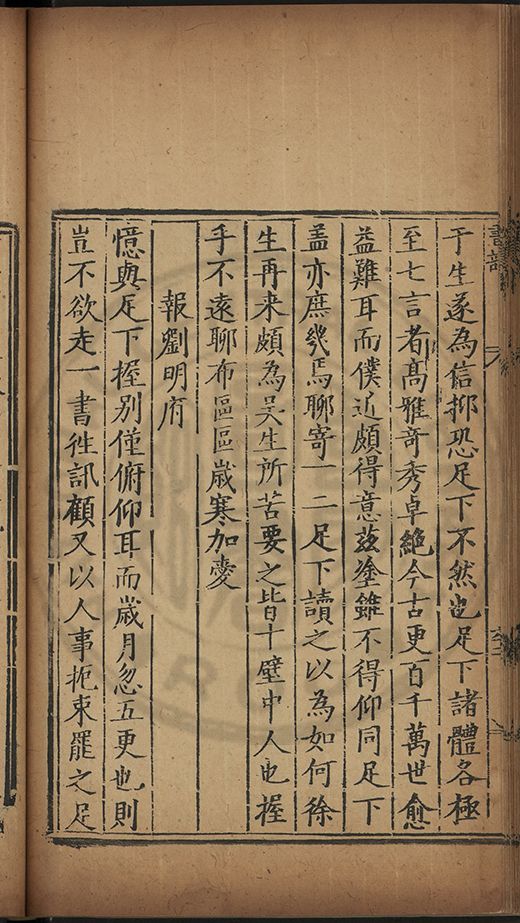 于生遂為信抑恐足下不然也足下諸體各極
至七言者高雅奇秀卓絕今古更百千萬世愈
益難耳而僕近頗得意茲塗雖不得仰同足下
盖亦庶幾焉聊寄一二足下讀之以為如何徐
生再来頗為吴生所苦要之皆十壁中人也握
手不遠聊布區區歲寒加愛
報劉明府
憶與足下握别僅俯仰耳而歲月忽五更也則
豈不欲走一書徃訊顧又以人事扼束罷之足